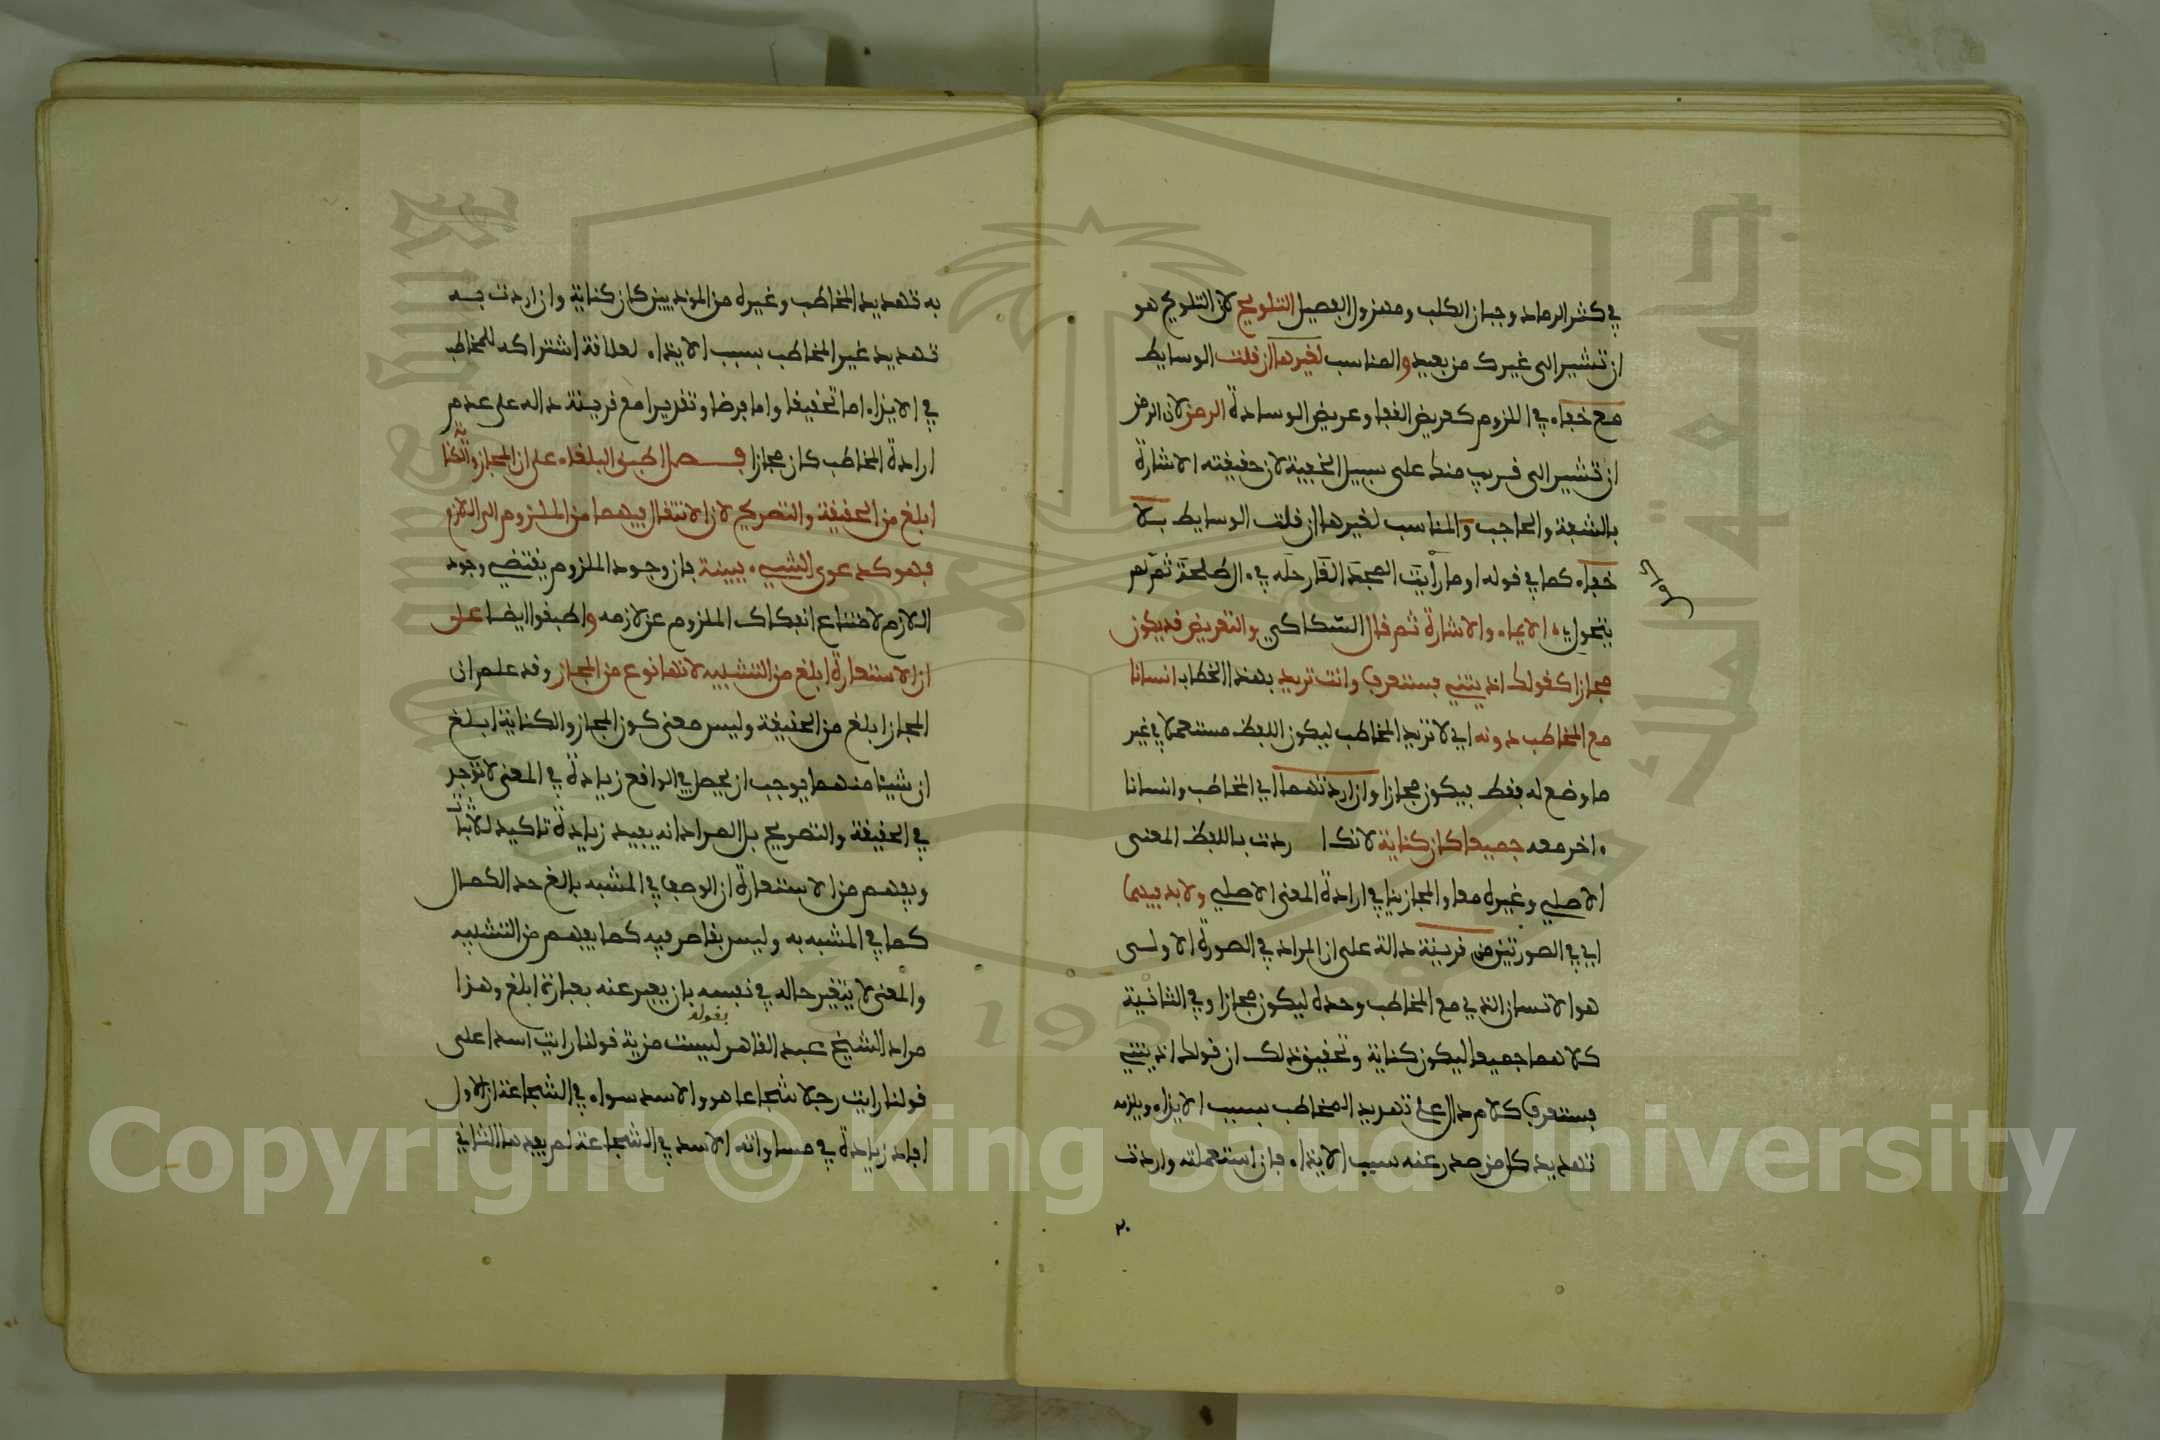 في كثير الرماد وجبان الكلب ومهزول الفصيل التلويح لان التلويح هو
ان تشير الى غيرك من بعيد والمناسب لغيرها ان قلت الوسايط
مع خفاء في اللزوم كعريض القفا وعريض الوسادة الرمز لان الرمز
ان تشير الى قريب منك على سبيل الخفية لان حقيقته الاشارة
بالشفة والحاجب والمناسب لغيرها ان قلت الوسايط بلا
خفاء كما في قوله اوما رأيت المجد القا رحله في ءال طلحة ثم لم
يتحول الايماء والاشارة ثم قال السكاكي والتعريض قد يكون
مجازا كقولك اذيتني فستعرف وانت تريد بهذا الخطاب انسانا
مع المخاطب دونه اي لا تريد المخاطب ليكون اللفظ مستعملا في غير
ما وضع له فقط فيكون مجازا وان اردتهما اي المخاطب وانسانا
ءاخر معه جميعا كان كناية لانك ا ردت باللفظ المعنى
الاصلي وغيره معا والمجاز ينافي ارادة المعنى الاصلي ولا بد فيهما
اي في الصورتين من قرينة دالة على ان المراد في الصورة الاولى
هو الانسان الذي مع المخاطب وحده ليكون مجازا وفي الثانية
كلاهما جميعا ليكون كناية وتحقيق ذلك ان قولك اذيتني
فستعرف كلام دال على تهديد المخاطب بسبب الايذاء ويلزمه
تهديد كل من صدر عنه سبب الايذاء فان استعملته واردت
٣٠
به تهديد المخاطب وغيره من الموذيين كان كناية وان اردت به
تهديد غير المخاطب بسبب الايذاء لعلاقة اشتراكه للمخاطب
في الايذاء اما تحقيقا واما فرضا وتقديرا مع قرينة داله على عدم
ارادة المخاطب كان مجازا فصل اطبق البلغاء على ان المجاز والكنا
ابلغ من الحقيقة والتصريح لان الانتقال فيهما من الملزوم الى اللازم
فهو كدعوى الشيء ببينة فان وجود الملزوم يقتضي وجود
اللازم لامتناع انفكاك الملزوم عن لازمه واطبقوا ايضا على
ان الاستعارة ابلغ من التشبيه لانها نوع من المجاز وقد علم ان
المجاز ابلغ من الحقيقة وليس معنى كون المجاز والكناية ابلغ
ان شيئا منهما يوجب ان يحصل في الواقع زيادة في المعنى لا توجد
في الحقيقة والتصريح بل المراد انه يفيد زيادة تاكيد للاثبات
ويفهم من الاستعارة ان الوصف في المشبه بالغ حد الكمال
كما في المشبه به وليس بقاصر فيه كما يفهم من التشبيه
والمعنى لا يتغير حاله في نفسه بان يعبر عنه بعبارة ابلغ وهذا
مراد الشيخ عبد القاهر بقوله ليست مزية قولنا رايت اسدا على
قولنا رايت رجلا شجاعا هو والاسد سواء في الشجاعة ان الاول
افاد زيادة في مساواته الاسد في الشجاعة لم يفدها الثاني
Copyright © King Saud University